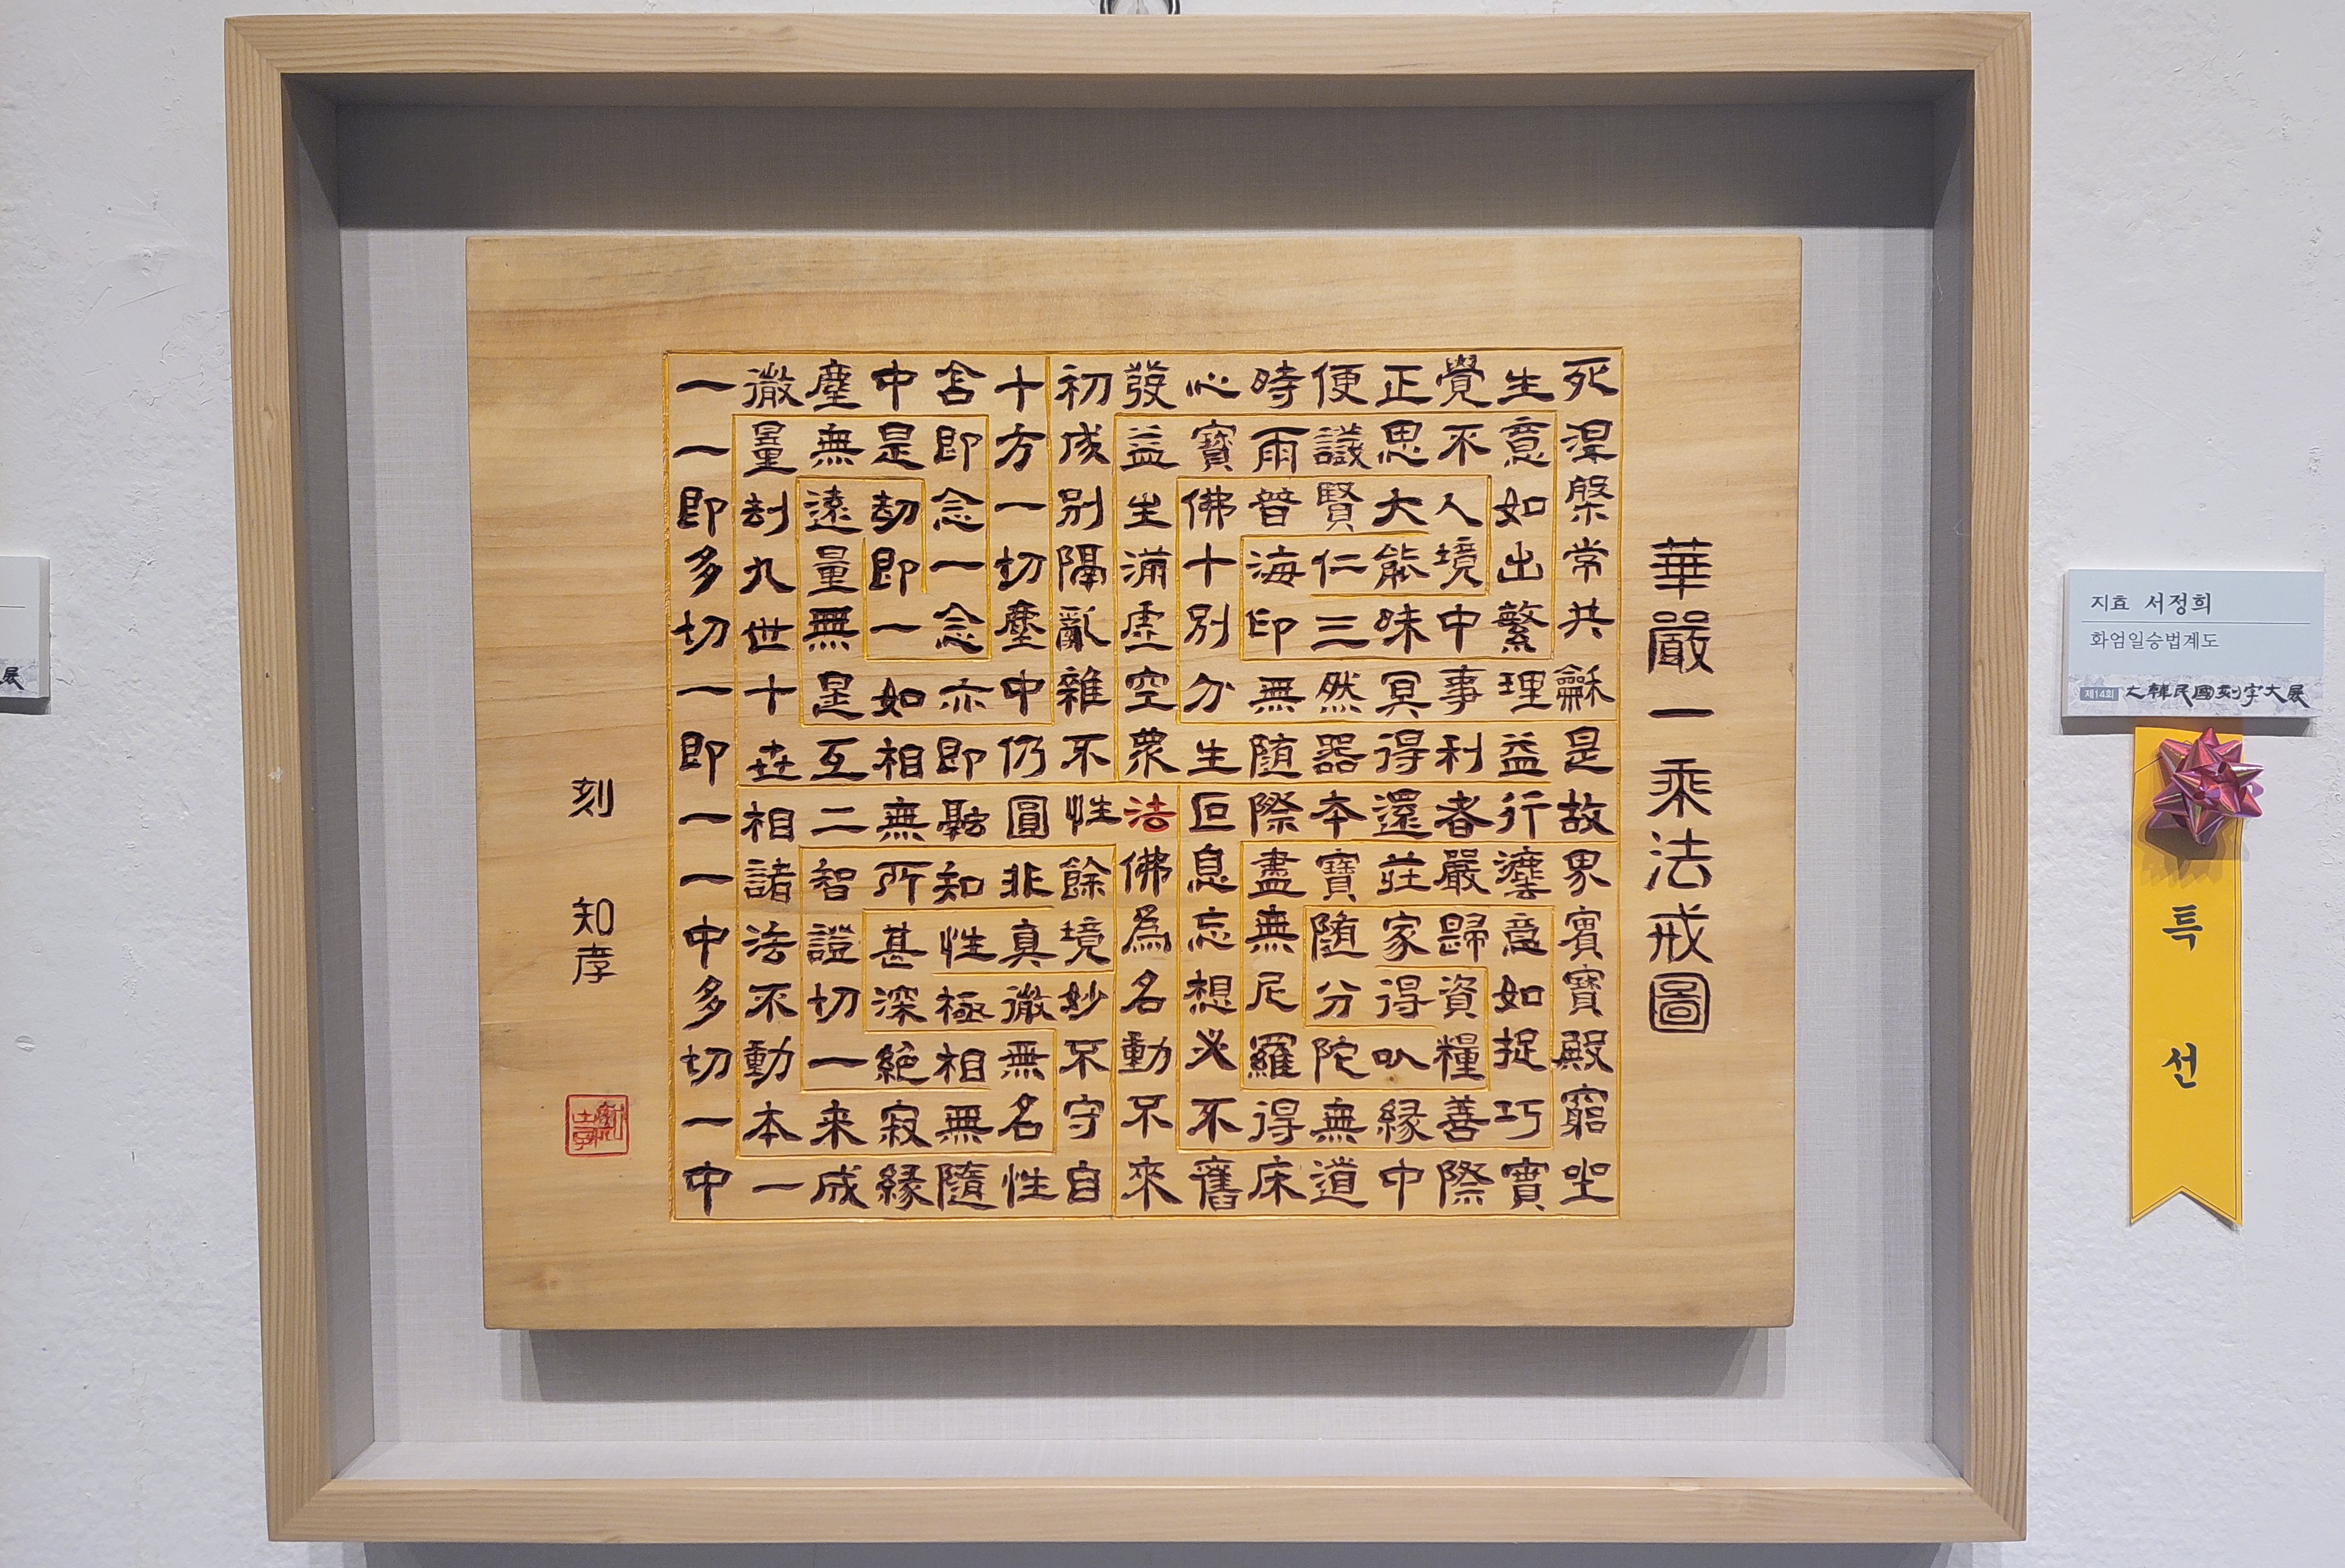 華嚴一乘法戒圖
一微塵中含十初發心時便正覺生死
一量無是即方成益寶雨議思不意涅
即劫遠劫念一別生佛普賢大人如槃
多九量即一切隔滿十海仁能境出常
切世無一念塵亂虛別印三昧中繁共
一十是如亦中雜空分無然冥事理龢
即世互相即仍不眾生隨器得利益是
一相二無融圓性法叵際本還者行故
一諸智所知非餘佛息盡寶莊嚴灋界
中法證甚性真境為忘無隨家歸意實
多不切深極微妙名想尼分得資如寶
切動一絕相無不動必羅陀以糧捉殿
一本来寂無名守不不得無緣善巧窮
中一成緣隨性自來舊床道中際實坐
刻 知孝
지효 서정희
화엄일승법계도
제14회 大韓民國刻字大展
특선